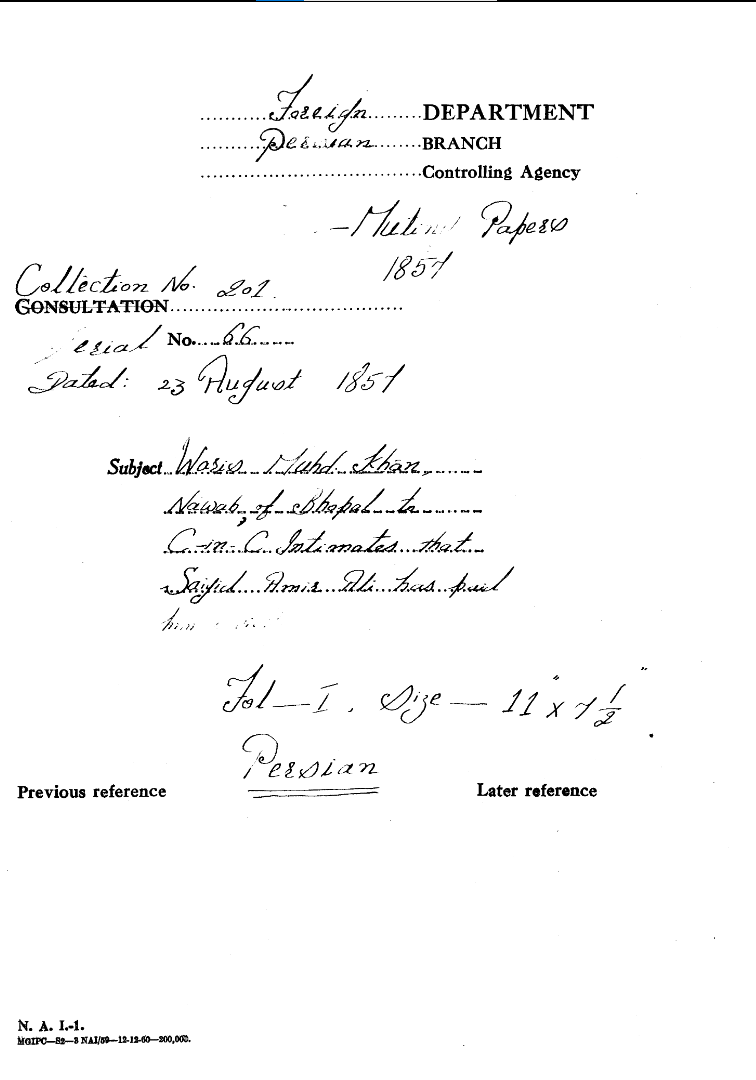 Foreign DEPARTMENT
Persian BRANCH
Controlling Agency
— Mutiny Papers
1857
Collection No. 201
CONSULTATION
Serial No. 66
Dated: 23 August 1857
Subject Waris Muhd. Khan,
Nawab, of Bhopal to
C-in-C Intimates that
Saiyid Amir Ali has paid
Fol — I. Size — 11" x 7 1/2"
Persian
Previous reference Later reference
N. A. I.-1.
MGIPC—S2—3 NAI/59—12-12-60—200,000.